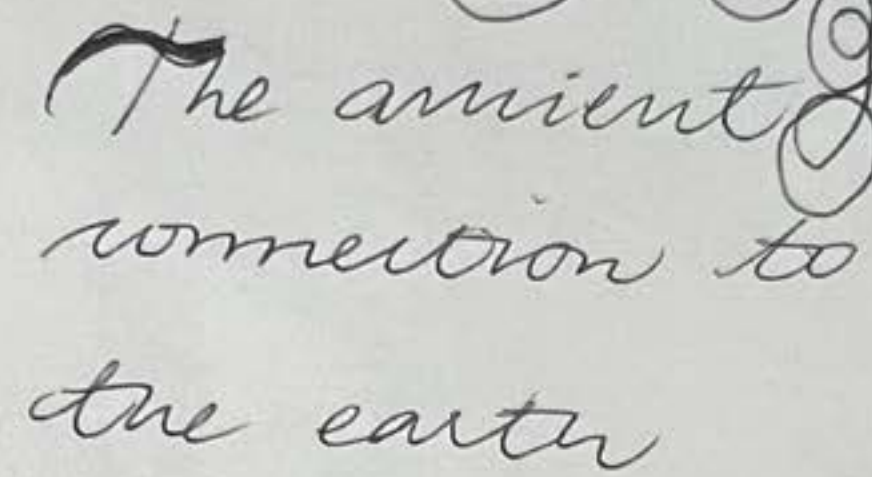 The ancient
connection to
the earth